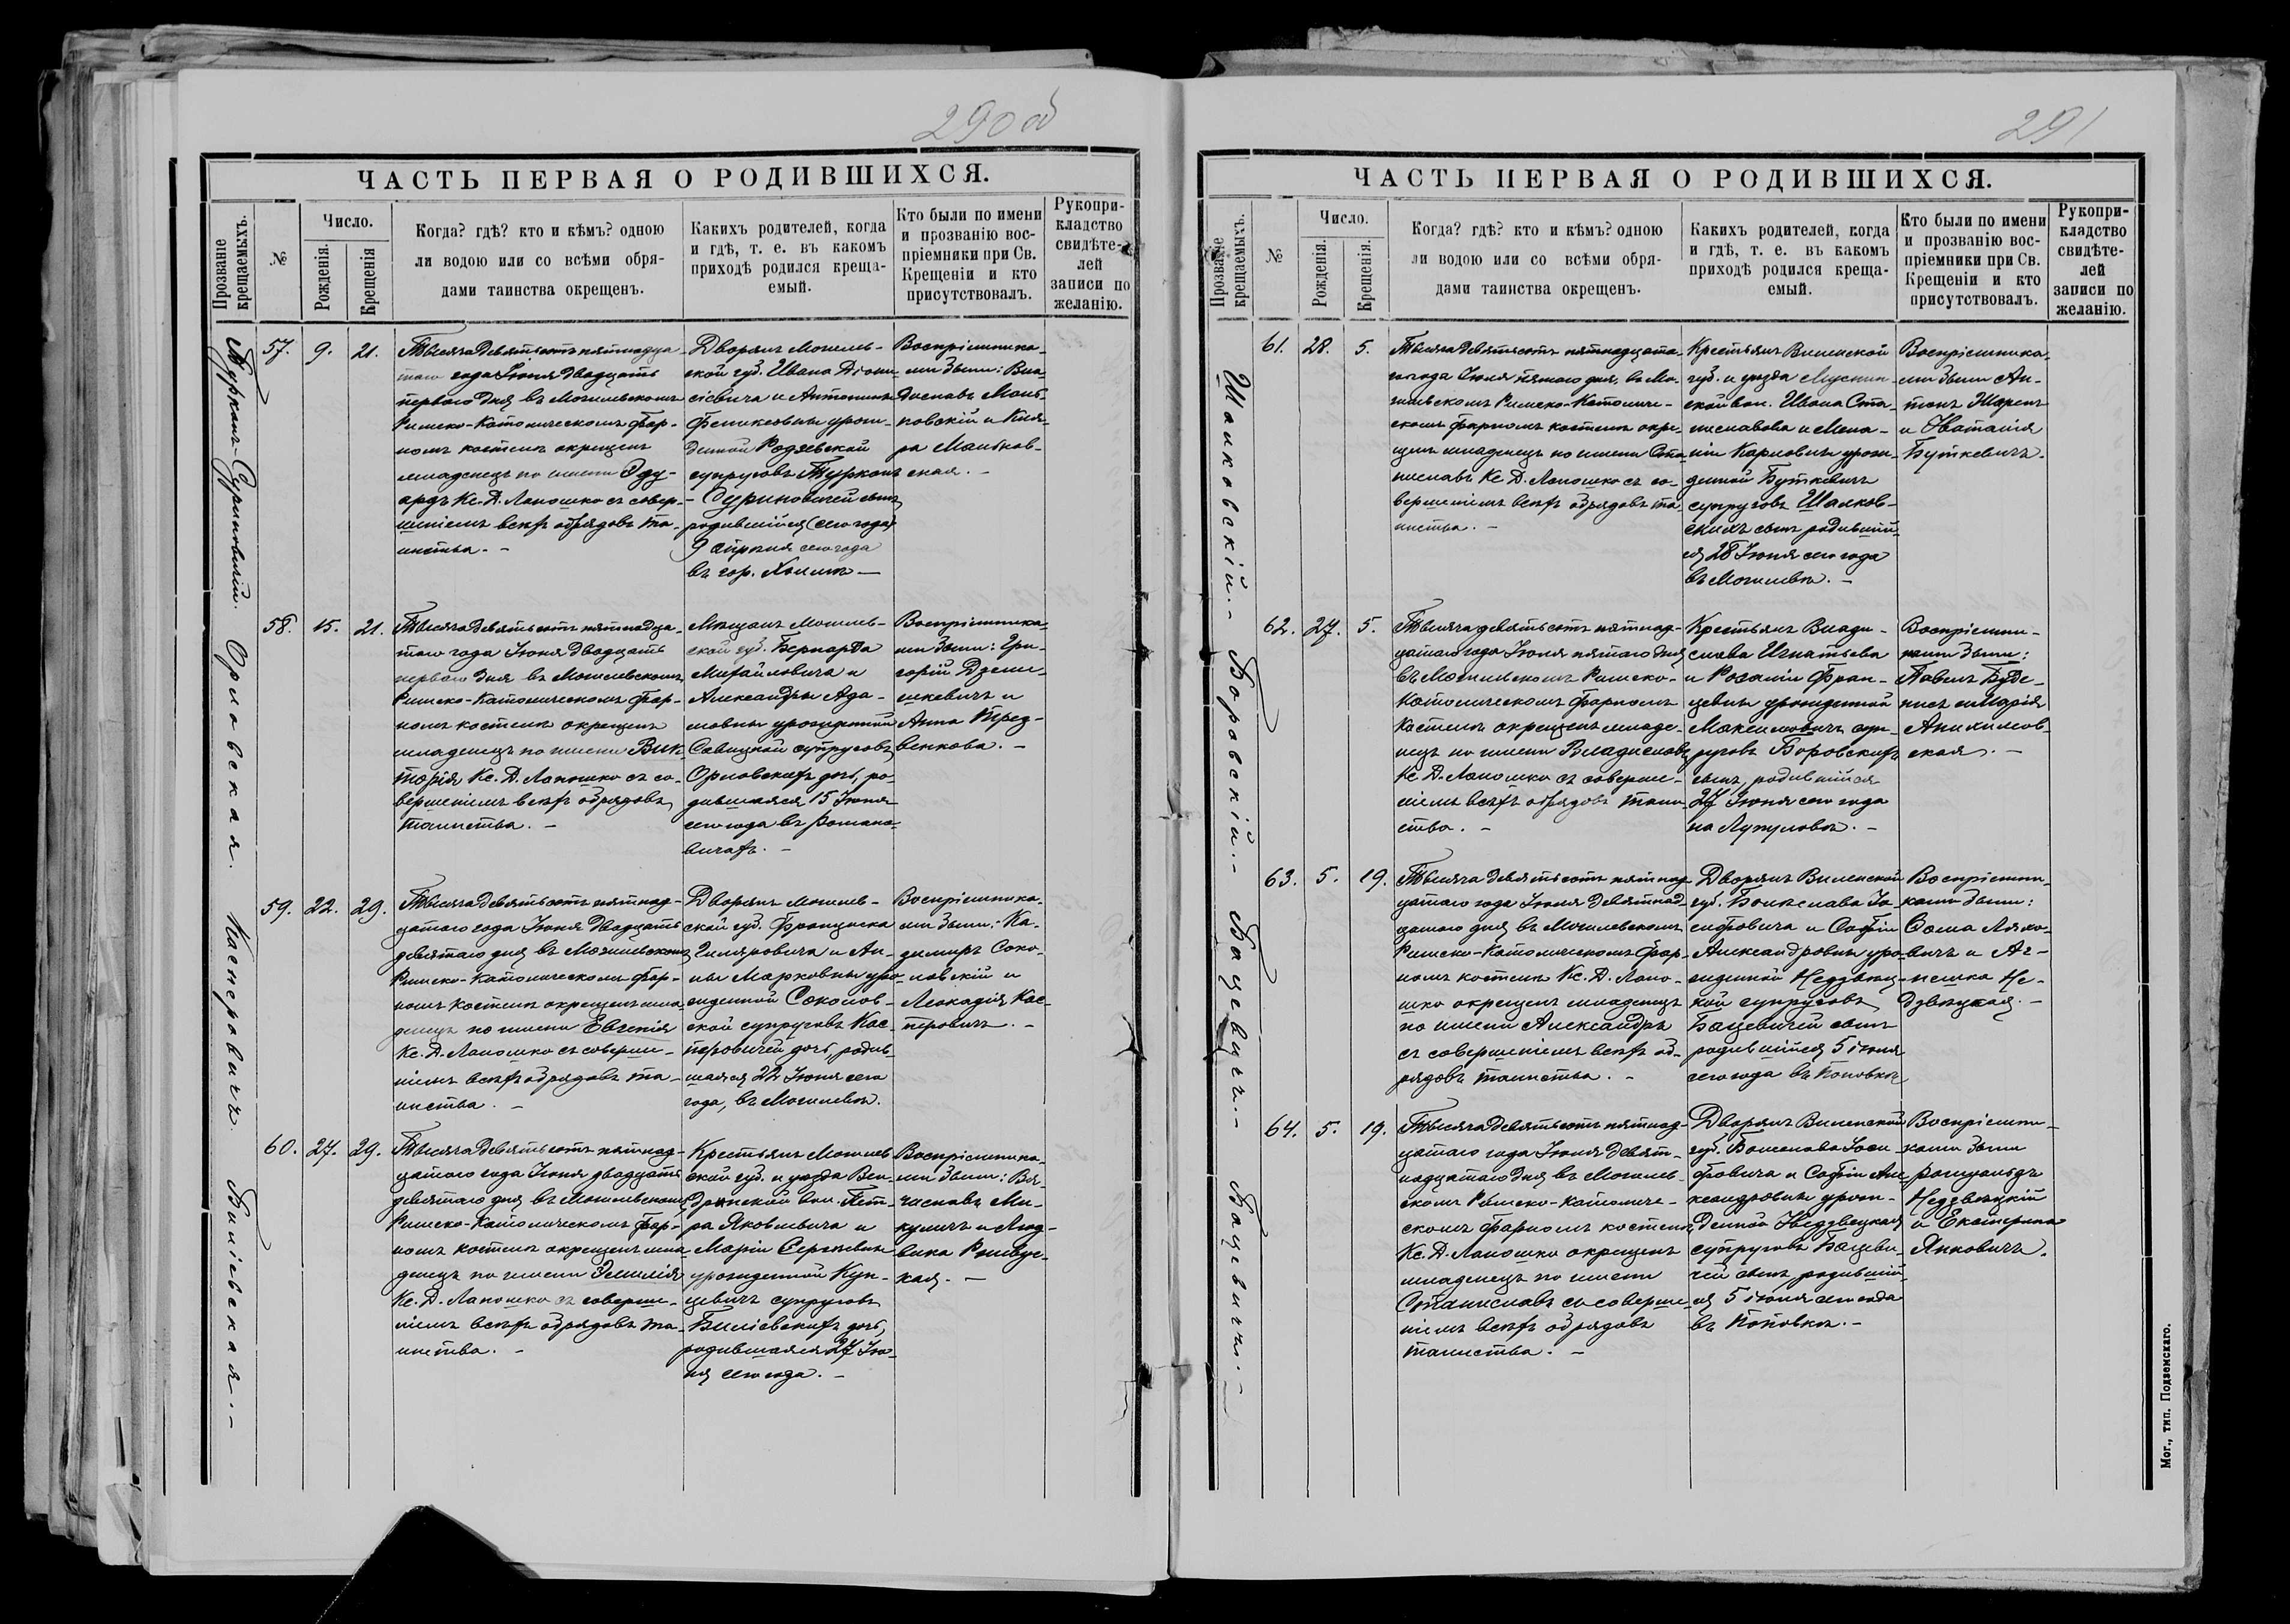 290 об
ЧАСТЬ ПЕРВАЯ О РОДИВШИХСЯ.
Прозваніе крещаемыхъ.
№
Число.
Рожденія.
Крещенія
Когда? гдѣ? кто и кѣмъ? одною
ли водою или со всѣми обря-
дами таинства окрещенъ.
Какихъ родителей, когда
и гдѣ, т. е. въ какомъ
приходѣ родился креща-
емый.
Кто были по имени
и прозванію вос-
пріемники при Св.
Крещеніи и кто
присутствовалъ.
Рукопри-
кладство
свидѣте-
лей
записи по
желанію.
57.
9.
21.
Тысяча девятьсотъ пятнадца-
таго года Іюня двадцать
перваго дня въ Могилевскомъ
Римско-Католическомъ фар-
номъ костелѣ окрещенъ
младенецъ по имени Эду-
ардъ Кс. Д. Лапошко съ совер-
шеніемъ всѣхъ обрядовъ та-
инства. -
Дворянъ Могилев-
ской губ. Ивана Діони-
сіевича и Антонины
Феликсовны урож-
денной Родзевской
супруговъ Турконъ
- Суриновичей сынъ
родившійся (сего года)
9 сего года
въ гор.
Воспріемника-
ми были: Вла-
диславъ Маль-
ковскій и Кля-
ра Мальков-
ская. -
Орловская.
58.
15.
21.
Тысяча девятьсотъ пятнадца-
таго года Іюня двадцать
перваго дня въ Могилевскомъ
Римско-Католическомъ фар-
номъ костелѣ окрещенъ
младенецъ по имени Вик-
торія Кс. Д. Лапошко съ со-
вершеніемъ всѣхъ обрядовъ
таинства. -
Мѣщанъ Могилев-
ской губ. Бернарда
Михайловича и
Александры Ада-
мовны урожденной
Савицкой супруговъ
Орловскихъ дочь, ро-
дившаяся 15 Іюня
сего года въ Романо-
вичахъ. -
Воспріемника-
ми были: Гри-
горій Дземе-
шкевичъ и
Анна
венкова. -
Касперовичъ.
59.
22.
29.
Тысяча девятьсотъ пятнад-
цатаго года Іюня двадцать
девятаго дня въ Могилевскомъ
Римско-Католическомъ фар-
номъ костелѣ окрещенъ мла-
денецъ по имени Евгенія
Кс. Д. Лапошко съ соверше-
ніемъ всѣхъ обрядовъ та-
инства. -
Дворянъ Могилев-
ской губ. Франциска
Гиляровича и Ан-
ны Марковны уро-
жденной Соколов-
ской супруговъ Кас-
перовичей дочь, родив-
шаяся 22 Іюня сего
года, въ Могилевѣ.
Воспріемника-
ми были: Ка-
зимиръ Соко-
ловскій и
Леокадія Кас-
перовичъ. -
Билевская. -
60.
27.
29.
Тысяча девятьсотъ пятнад-
цатаго года Іюня двадцать
девятаго дня въ Могилевскомъ
Римско-Католическомъ фар-
номъ костелѣ окрещенъ мла-
денецъ по имени Эмилія
Кс. Д. Лапошко съ соверше-
ніемъ всѣхъ обрядовъ та-
инства. -
Крестьянъ Могилев-
ской губ. и уѣзда Вен-
вол. Пет-
ра Яковлевича и
Маріи Сергѣевны
урожденной Кун-
цевичъ супруговъ
Билевскихъ дочь,
родившаяся 27 Ію-
ня сего года. -
Воспріемника-
ми были: Вя-
чеславъ Ми-
куличъ и Люд-
вика
кая. -
291
ЧАСТЬ ПЕРВАЯ О РОДИВШИХСЯ.
Прозваніе крещаемыхъ.
№
Число.
Рожденія.
Крещенія.
Когда? гдѣ? кто и кѣмъ? одною
ли водою или со всѣми обря-
дами таинства окрещенъ.
Какихъ родителей, когда
и гдѣ, т. е. въ какомъ
приходѣ родился креща-
емый.
Кто были по имени
и прозванію вос-
пріемники при Св.
Крещеніи и кто
присутствовалъ.
Рукопри-
кладство
свидѣте-
лей
записи по
желанію.
Шалковскій. -
61.
28.
5.
Тысяча девятьсотъ пятнадцата-
го года Іюля пятаго дня, въ Мо-
гилевскомъ Римско-Католиче-
скомъ фарномъ костелѣ окре-
щенъ младенецъ по имени Ста-
ниславъ Кс. Д. Лапошко съ со-
вершеніемъ всѣхъ обрядовъ та-
инства. -
Крестьянъ Виленской
губ. и уѣзда
вол. Ивана Ста-
ниславова и Мела-
ніи Карловны урож-
денной Буткевичъ
супруговъ Шалков-
скихъ сынъ родившій-
ся 28 Іюня сего года
въ Могилевѣ. -
Воспріемника-
ми были Ан-
тонъ
и Наталія
Буткевичъ.
Боровскій. -
62.
27.
5.
Тысяча девятьсотъ пятнад-
цатаго года Іюля пятаго дня
въ Могилевскомъ Римско-
Католическомъ фарномъ
костелѣ окрещенъ младе-
нецъ по имени Владиславъ
Кс. Д. Лапошко съ соверше-
ніемъ всѣхъ обрядовъ таин-
ства. -
Крестьянъ Влади-
слава Игнатьева
и Розаліи Фран-
цевны урожденной
Максимовичъ суп-
руговъ Боровскихъ
сынъ, родившійся
27 Іюня сего года
на Луполовѣ. -
Воспріемни-
ками были:
Павелъ
и Марія
Анихимов-
ская. -
Бацевичъ. -
63.
5.
19.
Тысяча девятьсотъ пятнад-
цатаго года Іюля девятнад-
цатаго дня въ Могилевскомъ
Римско-Католическомъ фар-
номъ костелѣ Кс. Д. Лапо-
шко окрещенъ младенецъ
по имени Александръ
съ совершеніемъ всѣхъ об-
рядовъ таинства. -
Дворянъ Виленской
губ. Болеслава Іо-
сифовича и Софіи
Александровны уро-
жденной Недзвец-
кой супруговъ
Бацевичей сынъ
родившійся 5 іюня
сего года въ Поповкѣ
Воспріемни-
ками были:
Ѳома Ляхо-
вичъ и Аг-
нешка Не-
дзвецкая. -
Бацевичъ. -
64.
5.
19.
Тысяча девятьсотъ пятнад-
цатаго года Іюля девят-
надцатаго дня въ Могилев-
скомъ Римско-Католиче-
скомъ фарномъ костелѣ
Кс. Д. Лапошко окрещенъ
младенецъ по имени
Станиславъ съ соверше-
ніемъ всѣхъ обрядовъ
таинства. -
Дворянъ Виленской
губ. Болеслава Іоси-
фовича и Софіи Але-
ксандровны урож-
денной Недзвецкой
супруговъ Бацеви-
чей сынъ родившій-
ся 5 іюня сего года
въ Поповкѣ. -
Воспріемни-
ками были
Ромуальдъ
Недзвецкій
и Екатерина
Янковичъ.
Мог., тип. Подземскаго.